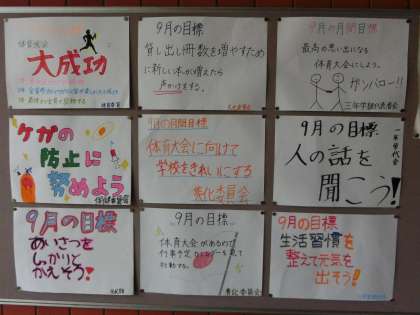 体育大会
大成功
9月の目標
貸し出し冊数を増やすため
に新しい本が増えたら
声かけをする。
9月の月間目標
最高の思い出になる
体育大会にしよう。
ガンバロー!!
三年学級代表者会
ケガの
防止に
努めよう
保健委員会
9月の月間目標
体育大会に向けて
学校をきれいにする
美化委員会
9月の目標
一年学代会
人の話を
聞こう!
9月の目標
あいさつを
しっかりと
かえそう!
9月の目標
体育大会があるので
行事予定カレンダーを見て
行動する。
9月の目標
生活習慣を
整えて元気を
出そう!